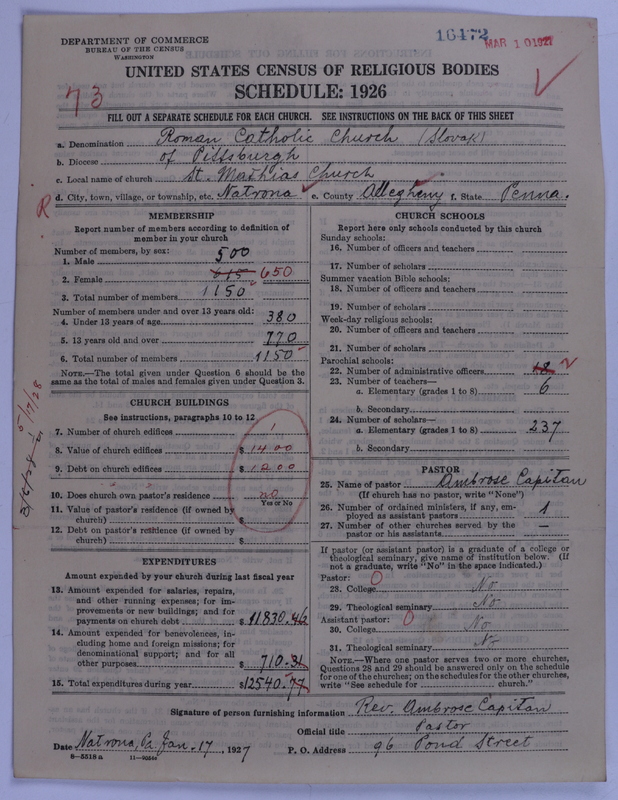 16172
MAR 10 1927
DEPARTMENT OF COMMERCE
BUREAU OF THE CENSUS
WASHINGTON
UNITED STATES CENSUS OF RELIGIOUS BODIES
SCHEDULE: 1926
73
FILL OUT A SEPARATE SCHEDULE FOR EACH CHURCH. SEE INSTRUCTIONS ON THE BACK OF THIS SHEET
a. Denomination Roman Catholic Church (Slovak)
b. Diocese of Pittsburgh
c. Local name of church St. Mathias Church
d. City, town, village, or township, etc. Natrona e. County Allegheny f. State Penna.
R
MEMBERSHIP
Report number of members according to definition of member in your church
Number of members, by sex:
1. Male 500
2. Female 615 650
3. Total number of members 1150
Number of members under and over 13 years old:
4. Under 13 years of age 380
5. 13 years old and over 770
6. Total number of members 1150
NOTE.—The total given under Question 6 should be the
same as the total of males and females given under Question 3.
CHURCH BUILDINGS
See instructions, paragraphs 10 to 12
7. Number of church edifices 1
8. Value of church edifices $ 1400
9. Debt on church edifices $ 1200
10. Does church own pastor's residence no
Yes or No
11. Value of pastor's residence (if owned by
church) $
12. Debt on pastor's residence (if owned by
church) $
EXPENDITURES
Amount expended by your church during last fiscal year
13. Amount expended for salaries, repairs,
and other running expenses; for im-
provements or new buildings; and for
payments on church debt $ 11830.46
14. Amount expended for benevolences, in-
cluding home and foreign missions; for
denominational support; and for all
other purposes $ 710.31
15. Total expenditures during year $ 12540.77
CHURCH SCHOOLS
Report here only schools conducted by this church
Sunday schools:
16. Number of officers and teachers
17. Number of scholars
Summer vacation Bible schools:
18. Number of officers and teachers
19. Number of scholars
Week-day religious schools:
20. Number of officers and teachers
21. Number of scholars
Parochial schools:
22. Number of administrative officers 2
23. Number of teachers—
a. Elementary (grades 1 to 8) 6
b. Secondary
24. Number of scholars—
a. Elementary (grades 1 to 8) 237
b. Secondary
PASTOR
25. Name of pastor Ambrose Capitan
(If church has no pastor, write "None")
26. Number of ordained ministers, if any, em-
ployed as assistant pastors 1
27. Number of other churches served by the
pastor or his assistants —
If pastor (or assistant pastor) is a graduate of a college or
theological seminary, give name of institution below. (If
not a graduate, write "No" in the space indicated.)
Pastor: 0
28. College No
29. Theological seminary No
Assistant pastor: 0
30. College No
31. Theological seminary No
NOTE.—Where one pastor serves two or more churches,
Questions 28 and 29 should be answered only on the schedule
for one of the churches; on the schedules for the other churches,
write "See schedule for church."
Signature of person furnishing information Rev. Ambrose Capitan
Official title Pastor
Date Natrona, Pa. Jan. 17, 1927 P. O. Address 96 Pond Street
8—5518 a